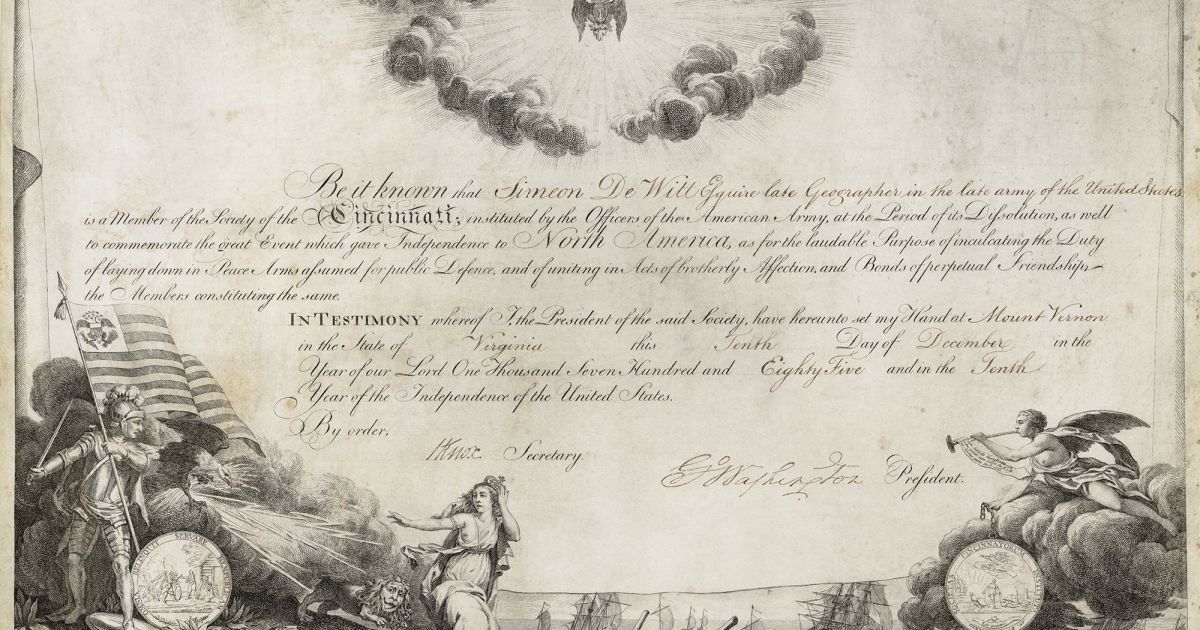 Be it known that Simeon De Witt Esquire late Geographer in the late army of the United States
is a Member of the Society of the Cincinnati; instituted by the Officers of the American Army, at the Period of its Dissolution, as well
to commemorate the great Event which gave Independence to North America, as for the laudable Purpose of inculcating the Duty
of laying down in Peace Arms assumed for public Defence, and of uniting in Acts of brotherly Affection, and Bonds of perpetual Friendship,
the Members constituting the same.
IN TESTIMONY whereof I, the President of the said Society, have hereunto set my Hand at Mount Vernon
in the State of Virginia this Tenth Day of December in the
Year of our Lord One Thousand Seven Hundred and Eighty Five and in the Tenth
Year of the Independence of the United States.
By order,
HKnox Secretary.
Go Washington President.